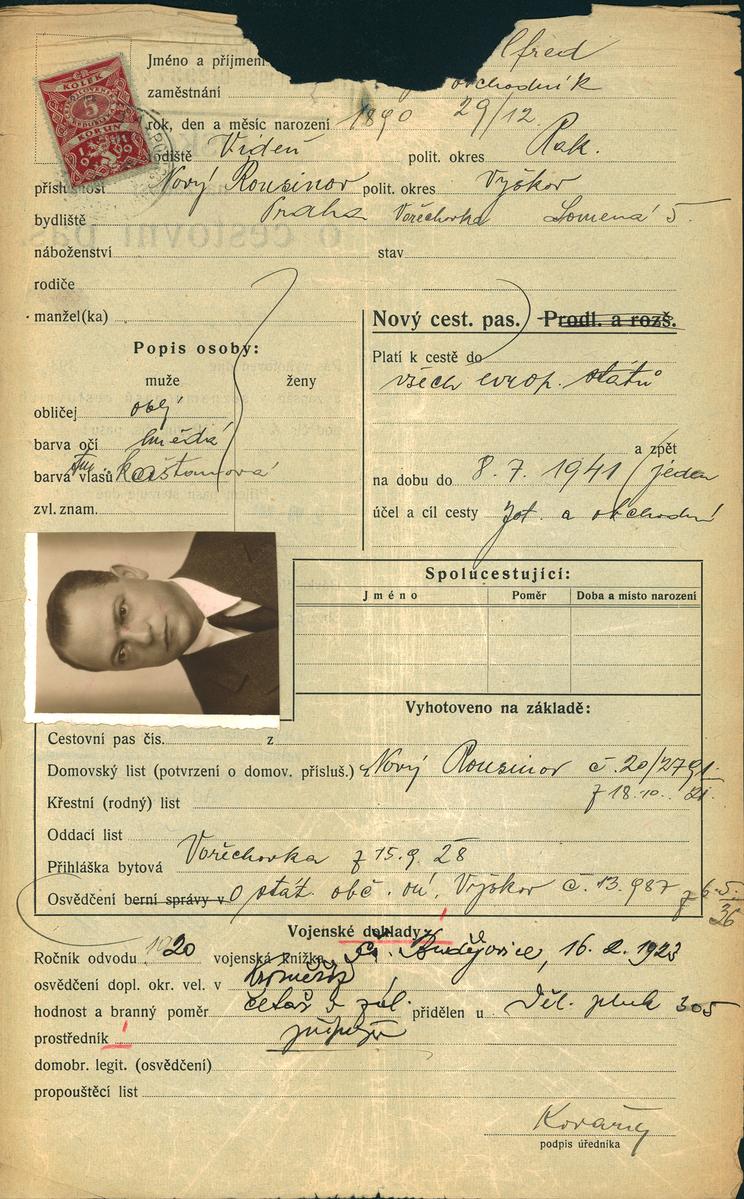 Jméno a příjmení lfred
zaměstnání obchodník
rok, den a měsíc narození 1890 29/12
rodiště Vídeň polit. okres Rak.
Nový Rousinov polit. okres Vyškov
bydliště Praha Vořechovka Lomená 5
náboženství stav
rodiče
manžel(ka)
Nový cest. pas. Prodl. a rozš.
Popis osoby:
muže ženy
obličej oblý
barva očí hnědá
barva vlasů tm kaštanová
zvl. znam.
Platí k cestě do
všech evrop. států
a zpět
na dobu do 8. 7. 1941 (jeden
účel a cíl cesty a obchodní
Spolucestující:
Jméno Poměr Doba a místo narození
Vyhotoveno na základě:
Cestovní pas čís. z
Domovský list (potvrzení o domov. přísluš.) Nový Rousinov č. 20/2791
z 18.10. 21.
Křestní (rodný) list
Oddací list
Přihláška bytová Vořechovka z 15.9.28
Osvědčení berní správy v O stát. obč. oú. Vyškov č. 13.987 z 6.5.
36
Vojenské doklady:
Ročník odvodu 1920 vojenská knížka Č. Budějovice, 16. 2. 1923
osvědčení dopl. okr. vel. v
hodnost a branný poměr četař v zál. přidělen u Děl. pluk 305
prostředník
domobr. legit. (osvědčení)
propouštěcí list
Kovařík
podpis úředníka
KOLEK
5
KORUN
1919